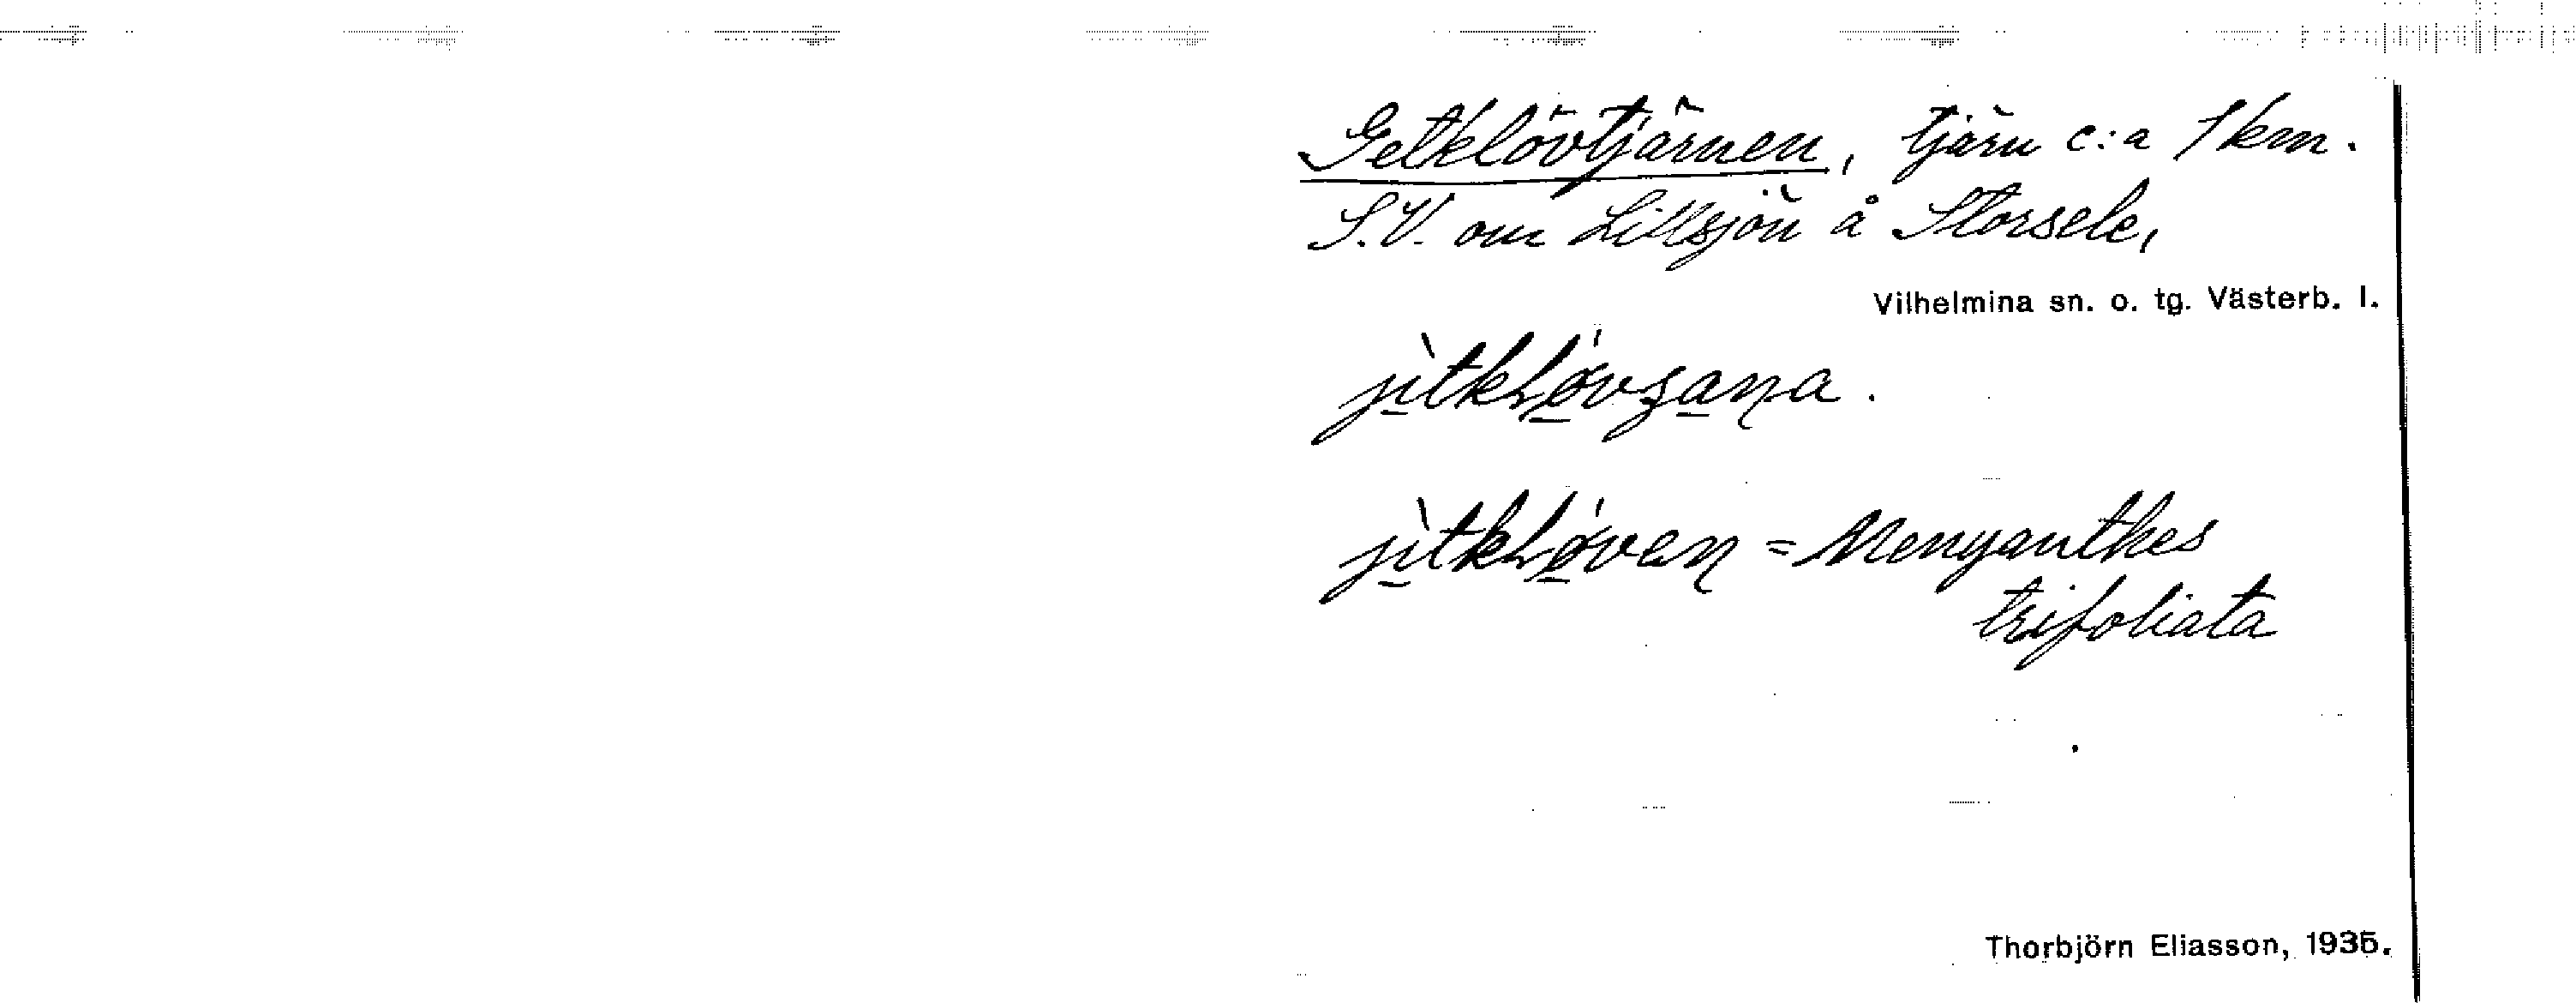 Getklövtjärnen, tjärn c:a 1 km.
S.V. om Lillsjön å Storsele,
Vilhelmina sn. o. tg. Västerb. l.
= Menyanthes
trifoliata
Thorbjörn Eliasson, 1935.